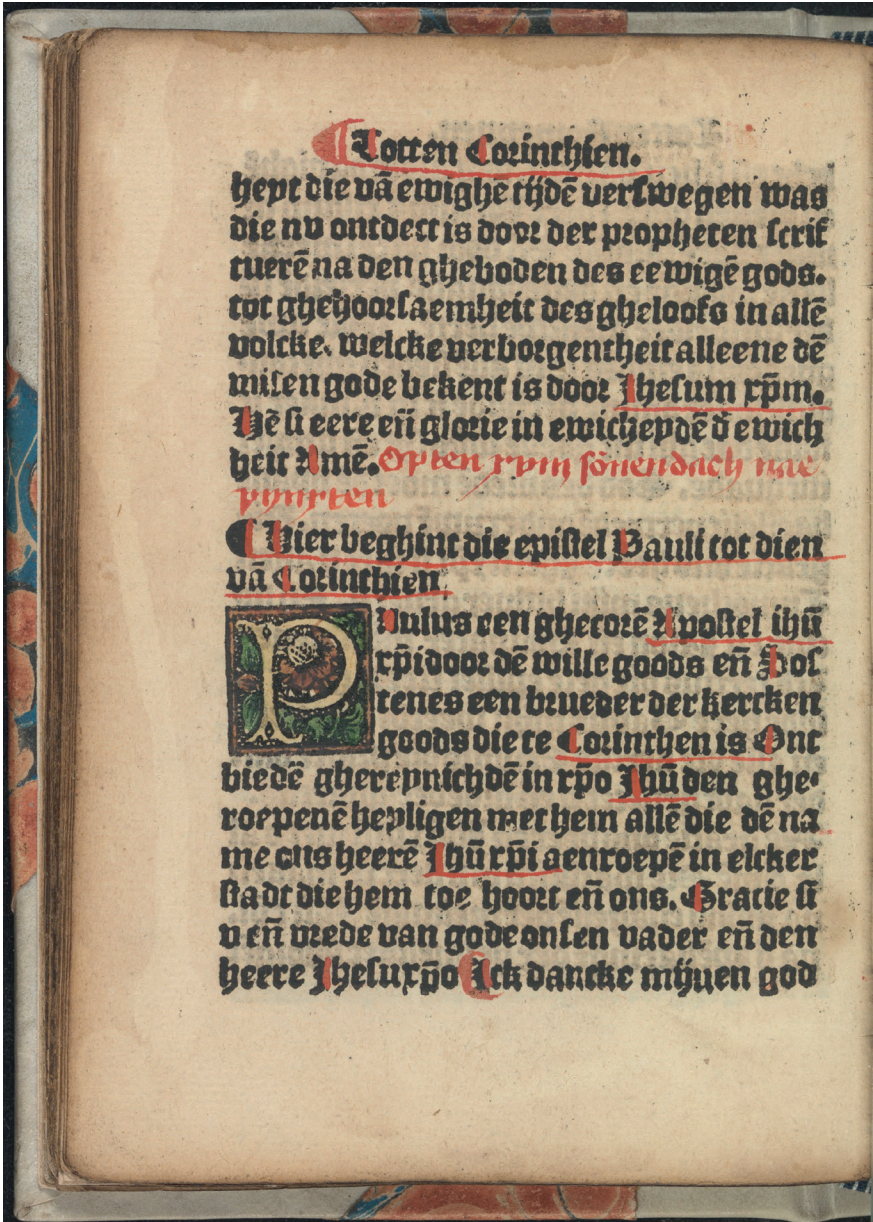 ¶ Totten Corinthien.
heyt die vā ewighē tijdē verswegen was
die nv ontdect is door der propheten scrif
tuerē na den gheboden des eewigē gods.
tot ghehoorsaemheit des gheloofs in allē
volcke. welcke verborgentheit alleene dē
wisen gode bekent is door Jhesum xp̄m.
Hē si eere eñ glorie in ewicheydē d̄ ewich
heit Amē. Opten xviij sōnendach nae
pynxten
¶ Hier beghint die epistel Pauli tot dien
vā Corinthien
PAulus een ghecorē Apostel ihū
xp̄i door dē wille goods eñ Sos
tenes een brueder der kercken
goods die te Corinthen is Ont
biedē ghereynichdē in xp̄o Jhū den ghe-
roepenē heyligen met hem allē die dē na
me ons heerē Jhū xp̄i aenroepē in elcker
stadt die hem toe hoort eñ ons. Gracie si
v eñ vrede van gode onsen vader eñ den
heere Jhesu xp̄o Ick dancke mijnen god